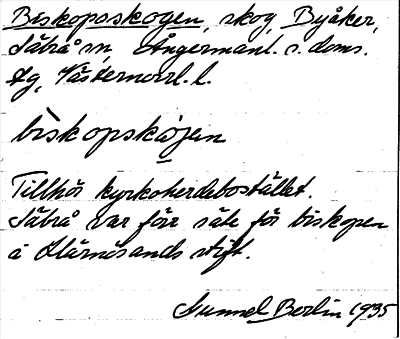 Biskopsskogen, skog, Byåker,
Säbrå sn, Ångermanl. s. doms.
tg, Västernorrl. l.
bìskopskọjen
Tillhör kyrkoherdebostället.
Säbrå var förr säte för biskopen
i Härnösands stift.
Gunnel Berlin 1935